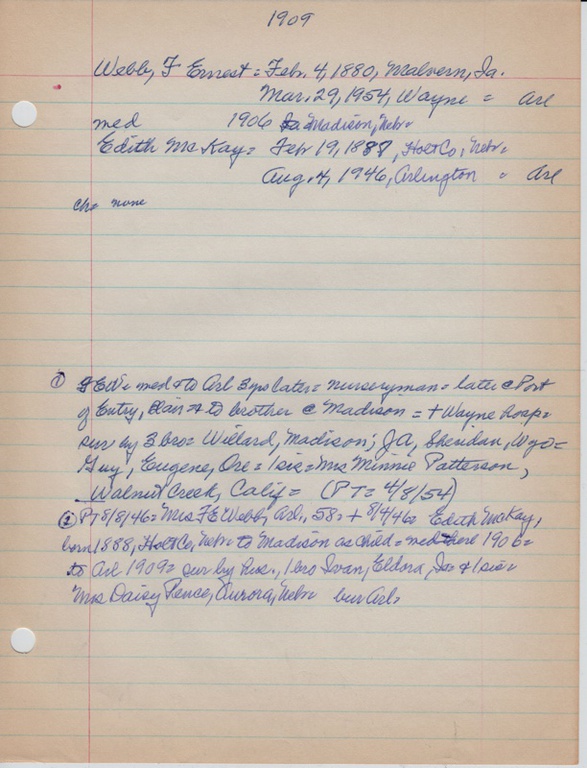 1909
Webb, F Ernest = Feb. 4, 1880, Malvern, Ia.
Mar. 29, 1954, Wayne = Arl
med 1906 Madison, Nebr
Edith McKay = Feb 19, 1888, Holt Co, Nebr=
Aug. 4, 1946, Arlington = Arl
Ch= none
① FEW= med & to Arl 3 yrs later = nurseryman = later @ Port
of Entry, Blair & to brother @ Madison = + Wayne hosp=
sur by 3 bro= Willard, Madison; JA, Sheridan, Wyo=
Guy, Eugene, Ore = 1 sis = Mrs Minnie Patterson,
Walnut Creek, Calif = (PT = 4/8/54)
② PT 8/8/46 = Mrs FE Webb, Arl, 58 = + 8/4/46 = Edith McKay,
born 1888, Holt Co, Nebr to Madison as child = med there 1906 =
to Arl 1909 = sur by hus., 1 bro Ivan, Eldora, Ia & 1 sis =
Mrs Daisy Pence, Aurora, Nebr= bur Arl=